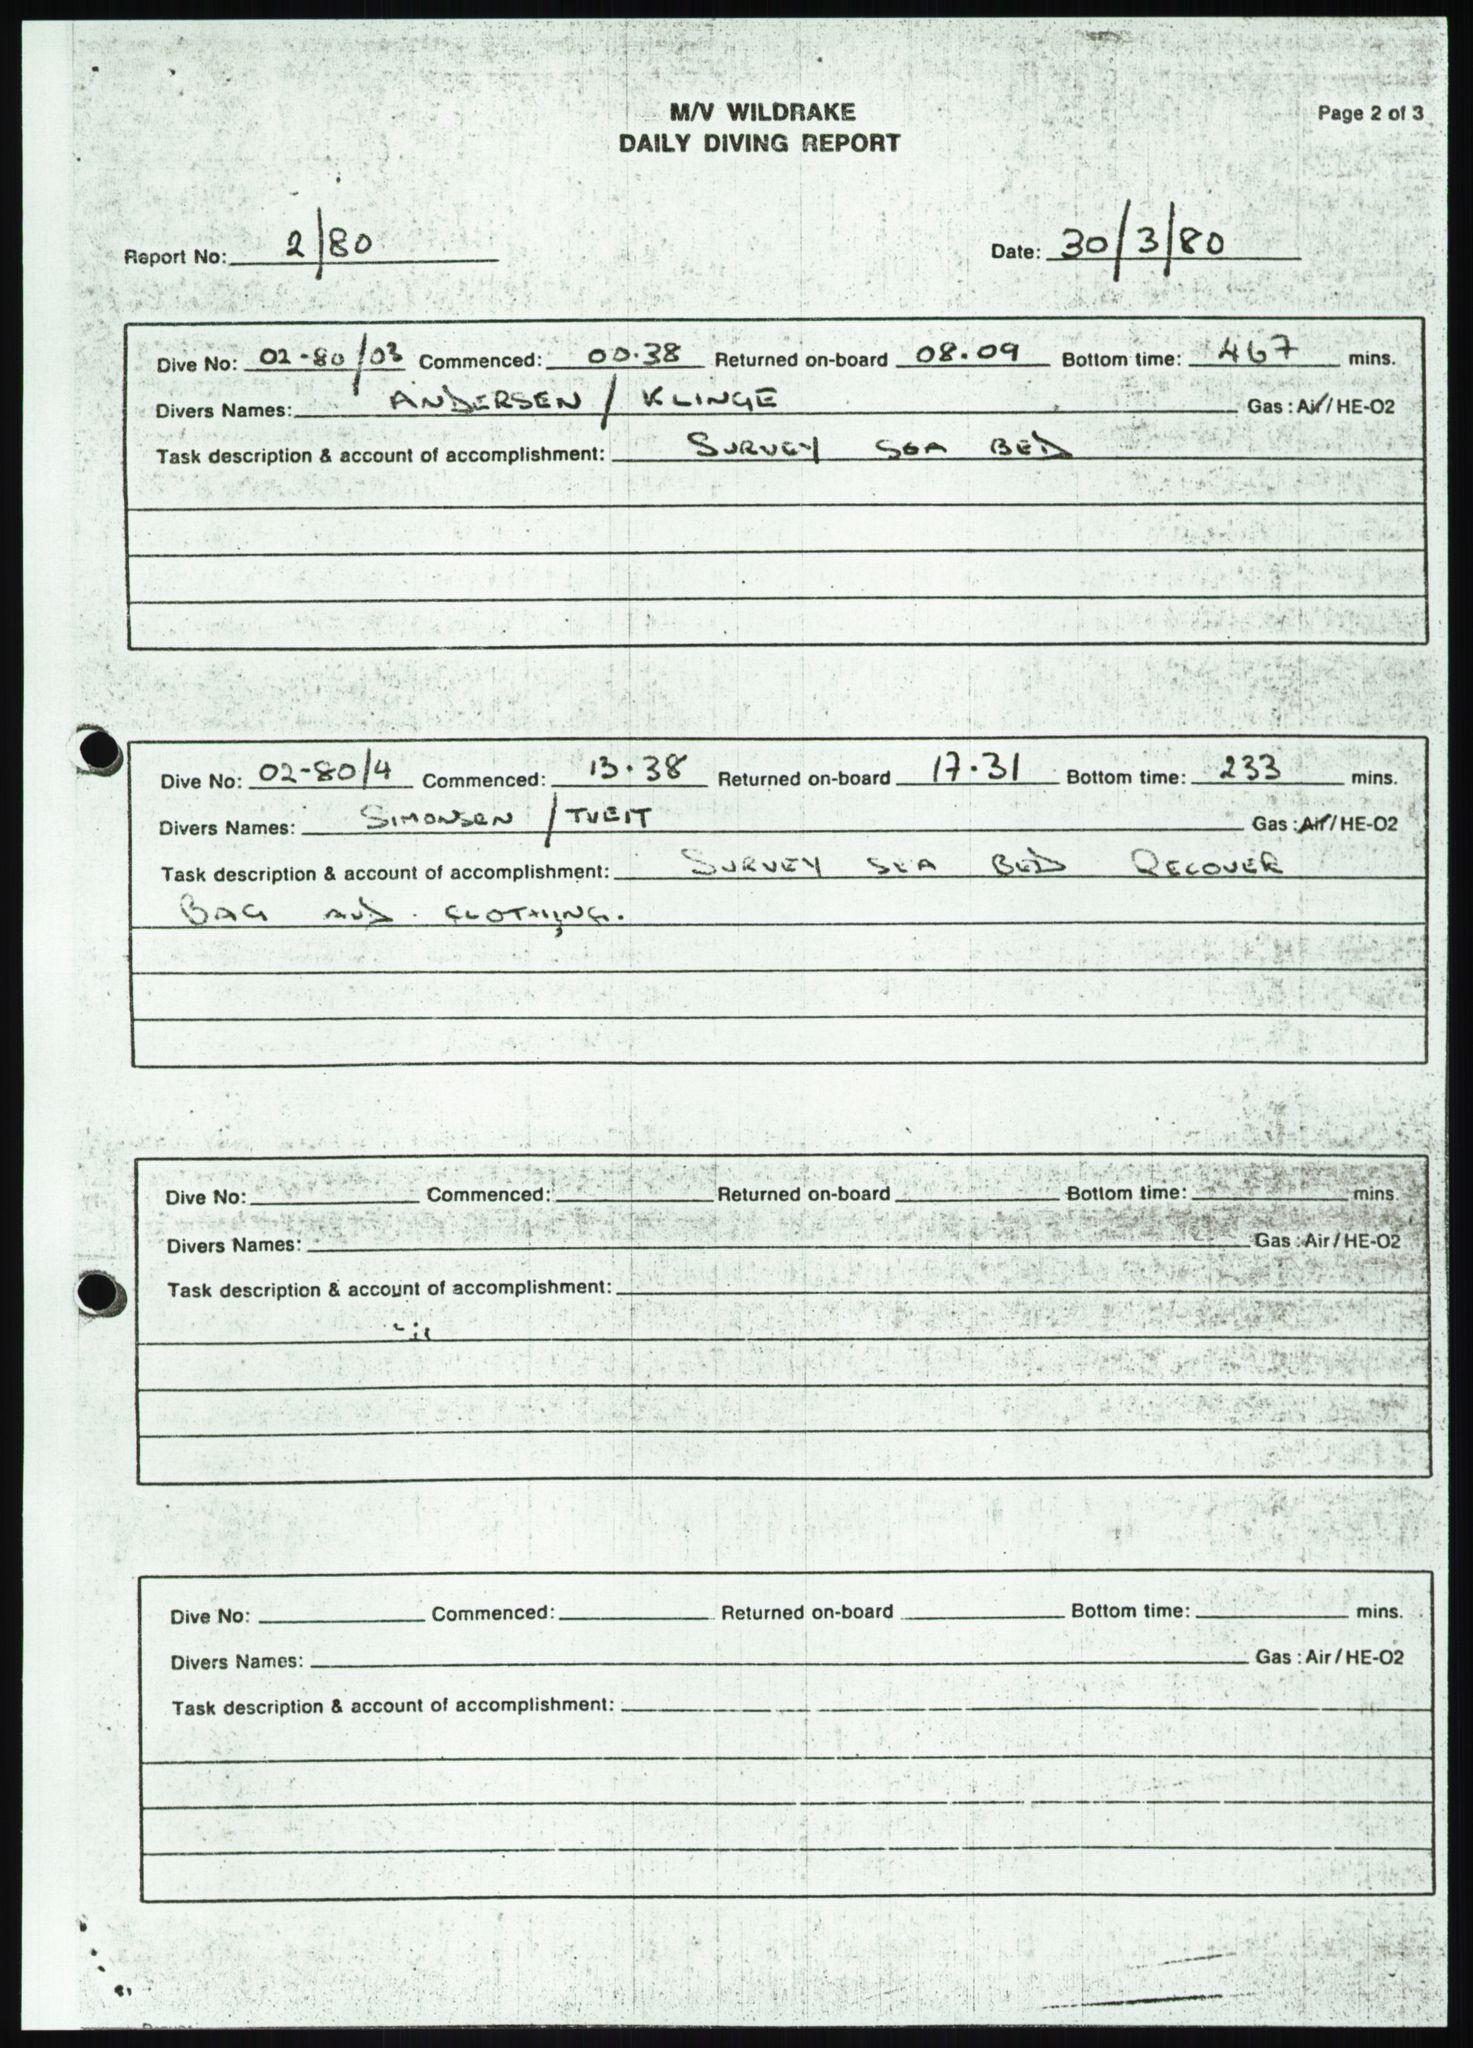 M/V WILDRAKE
DAILY DIVING REPORT
Page 2 of 3
Report No: 2/80 Date: 30/3/80
Dive No: 02-80/03 Commenced: 00.38 Returned on-board 08.09 Bottom time: 467 mins.
Divers Names: ANDERSEN / KLINGE Gas : Air / HE-O2
Task description & account of accomplishment: SURVEY SEA BED
Dive No: 02-80/4 Commenced: 13.38 Returned on-board 17.31 Bottom time: 233 mins.
Divers Names: SIMONSEN / TVEIT Gas : Air / HE-O2
Task description & account of accomplishment: SURVEY SEA BED RECOVER
BAG AND CLOTHING.
Dive No: Commenced: Returned on-board Bottom time: mins.
Divers Names: Gas : Air / HE-O2
Task description & account of accomplishment:
Dive No: Commenced: Returned on-board Bottom time: mins.
Divers Names: Gas : Air / HE-O2
Task description & account of accomplishment: